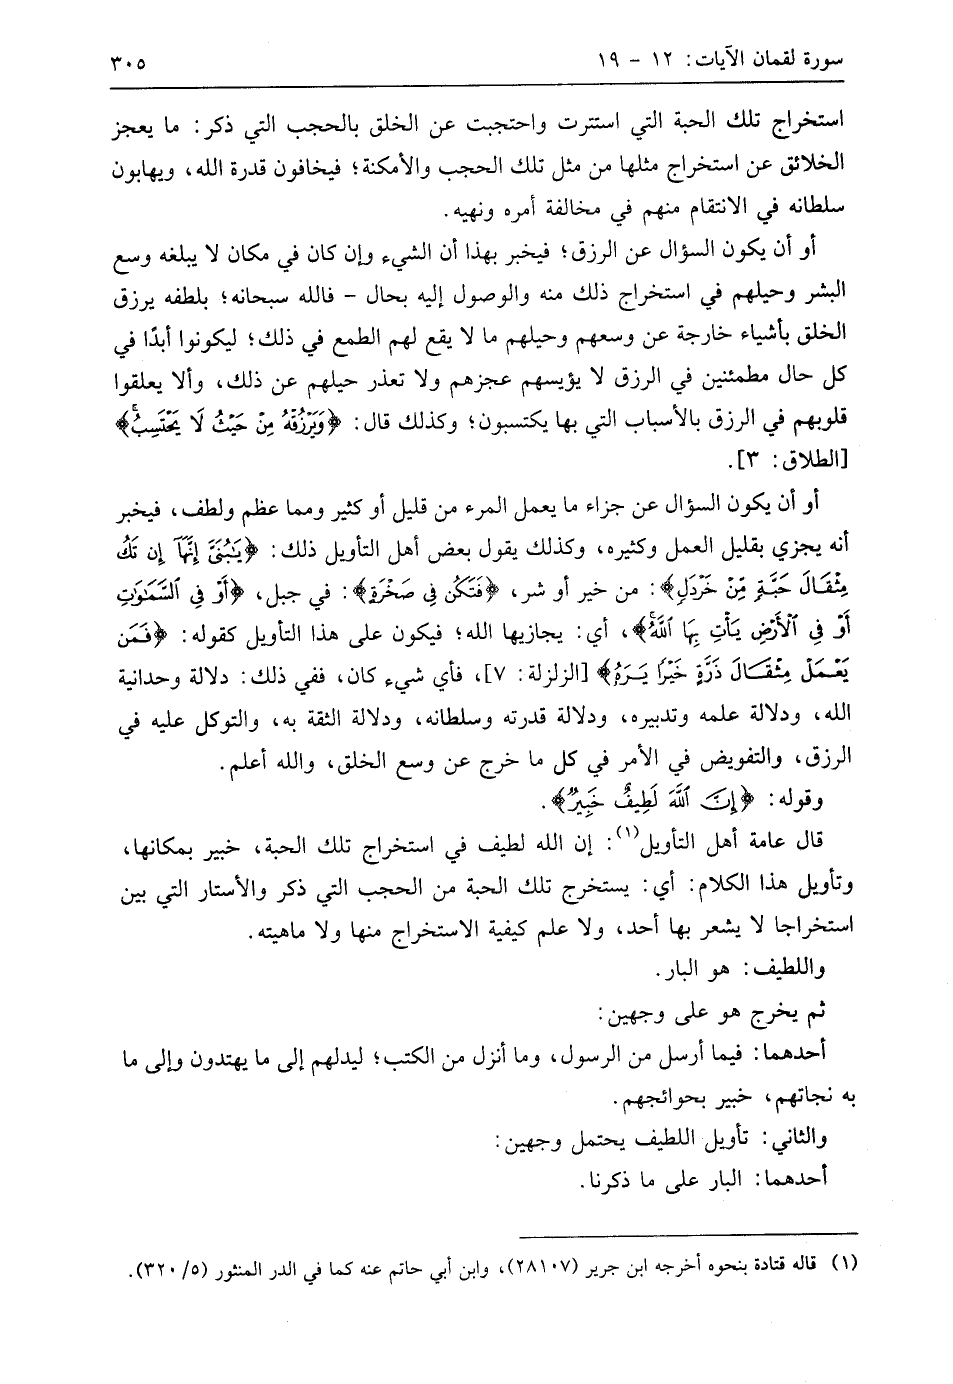 سورة لقمان الآيات: ١٢ - ١٩
٣٠٥
استخراج تلك الحبة التي استترت واحتجبت عن الخلق بالحجب التي ذكر: ما يعجز
الخلائق عن استخراج مثلها من مثل تلك الحجب والأمكنة؛ فيخافون قدرة الله، ويهابون
سلطانه في الانتقام منهم في مخالفة أمره ونهيه.
أو أن يكون السؤال عن الرزق؛ فيخبر بهذا أن الشيء وإن كان في مكان لا يبلغه وسع
البشر وحيلهم في استخراج ذلك منه والوصول إليه بحال - فالله سبحانه؛ بلطفه يرزق
الخلق بأشياء خارجة عن وسعهم وحيلهم ما لا يقع لهم الطمع في ذلك؛ ليكونوا أبدًا في
كل حال مطمئنين في الرزق لا يؤيسهم عجزهم ولا تعذر حيلهم عن ذلك، وألا يعلقوا
قلوبهم في الرزق بالأسباب التي بها يكتسبون؛ وكذلك قال: ﴿وَيَرْزُقْهُ مِنْ حَيْثُ لَا يَحْتَسِبُۚ﴾
[الطلاق: ٣].
أو أن يكون السؤال عن جزاء ما يعمل المرء من قليل أو كثير ومما عظم ولطف، فيخبر
أنه يجزي بقليل العمل وكثيره، وكذلك يقول بعض أهل التأويل ذلك: ﴿يَٰبُنَيَّ إِنَّهَآ إِن تَكُ
مِثْقَالَ حَبَّةٍ مِّنْ خَرْدَلٍ﴾: من خير أو شر، ﴿فَتَكُن فِي صَخْرَةٍ﴾: في جبل، ﴿أَوْ فِي ٱلسَّمَٰوَٰتِ
أَوْ فِي ٱلْأَرْضِ يَأْتِ بِهَا ٱللَّهُۚ﴾، أي: يجازيها الله؛ فيكون على هذا التأويل كقوله: ﴿فَمَن
يَعْمَلْ مِثْقَالَ ذَرَّةٍ خَيْرًا يَرَهُ﴾ [الزلزلة: ٧]، فأي شيء كان، ففي ذلك: دلالة وحدانية
الله، ودلالة علمه وتدبيره، ودلالة قدرته وسلطانه، ودلالة الثقة به، والتوكل عليه في
الرزق، والتفويض في الأمر في كل ما خرج عن وسع الخلق، والله أعلم.
وقوله: ﴿إِنَّ ٱللَّهَ لَطِيفٌ خَبِيرٌ﴾.
قال عامة أهل التأويل(١): إن الله لطيف في استخراج تلك الحبة، خبير بمكانها،
وتأويل هذا الكلام: أي: يستخرج تلك الحبة من الحجب التي ذكر والأستار التي بين
استخراجا لا يشعر بها أحد، ولا علم كيفية الاستخراج منها ولا ماهيته.
واللطيف: هو البار.
ثم يخرج هو على وجهين:
أحدهما: فيما أرسل من الرسول، وما أنزل من الكتب؛ ليدلهم إلى ما يهتدون وإلى ما
به نجاتهم، خبير بحوائجهم.
والثاني: تأويل اللطيف يحتمل وجهين:
أحدهما: البار على ما ذكرنا.
(١) قاله قتادة بنحوه أخرجه ابن جرير (٢٨١٠٧)، وابن أبي حاتم عنه كما في الدر المنثور (٥/ ٣٢٠).